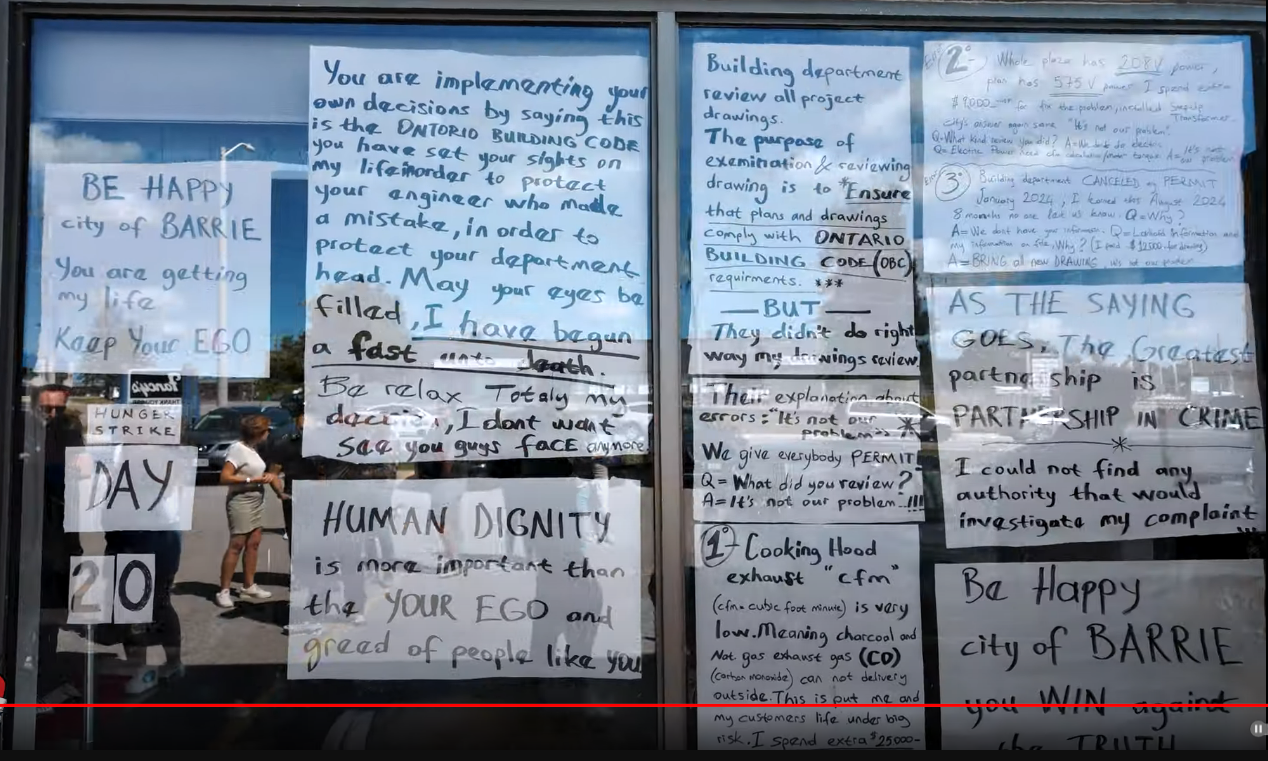 BE HAPPY
city of BARRIE
You are getting
my life
Keep Your EGO
HUNGER
STRIKE
DAY
20
You are implementing your
own decisions by saying this
is the ONTORIO BUILDING CODE
you have set your sights on
my life inorder to protect
your engineer who made
a mistake, in order to
protect your department
head. May your eyes be
filled, I have begun
a fast unto death.
Be relax Totaly my
decision, I dont want
see you guys FACE anymore
HUMAN DIGNITY
is more important than
the YOUR EGO and
greed of people like you
Building department
review all project
drawings.
The purpose of
exemination & reviewing
drawing is to *Ensure
that plans and drawings
comply with ONTARIO
BUILDING CODE (OBC)
requirments. ***
— BUT —
They didn't do right
way my drawings review.
Their explanation about
errors: "It's not our
problem" *
We give everybody PERMIT
Q = What did you review?
A = It's not our problem..!!!
1° Cooking Hood
exhaust "cfm"
(cfm = cubic foot minute) is very
low. Meaning charcoal and
Nat. gas exhaust gas (CO)
(carbon monoxide) can not delivery
outside. This is put me and
my customers life under big
risk. I spend extra $25000-
2° Whole plaza has 208V power,
plan has 575V power I spend extra
for fix the problem, installed
Transformer.
City's answer again same "It's not our problem"
3° Building department CANCELED my PERMIT
January 2024, I learned this August 2024
8 months no one let us know. Q = Why?
A = We dont have your information. Q = Information and
my information on file, Why?
A = BRING al new DRAWING
AS THE SAYING
GOES, The Greatest
partnership is
PARTNERSHIP IN CRIME
*
I could not find any
authority that would
investigate my complaint
!!!
Be Happy
city of BARRIE
you WIN against
the TRUTH